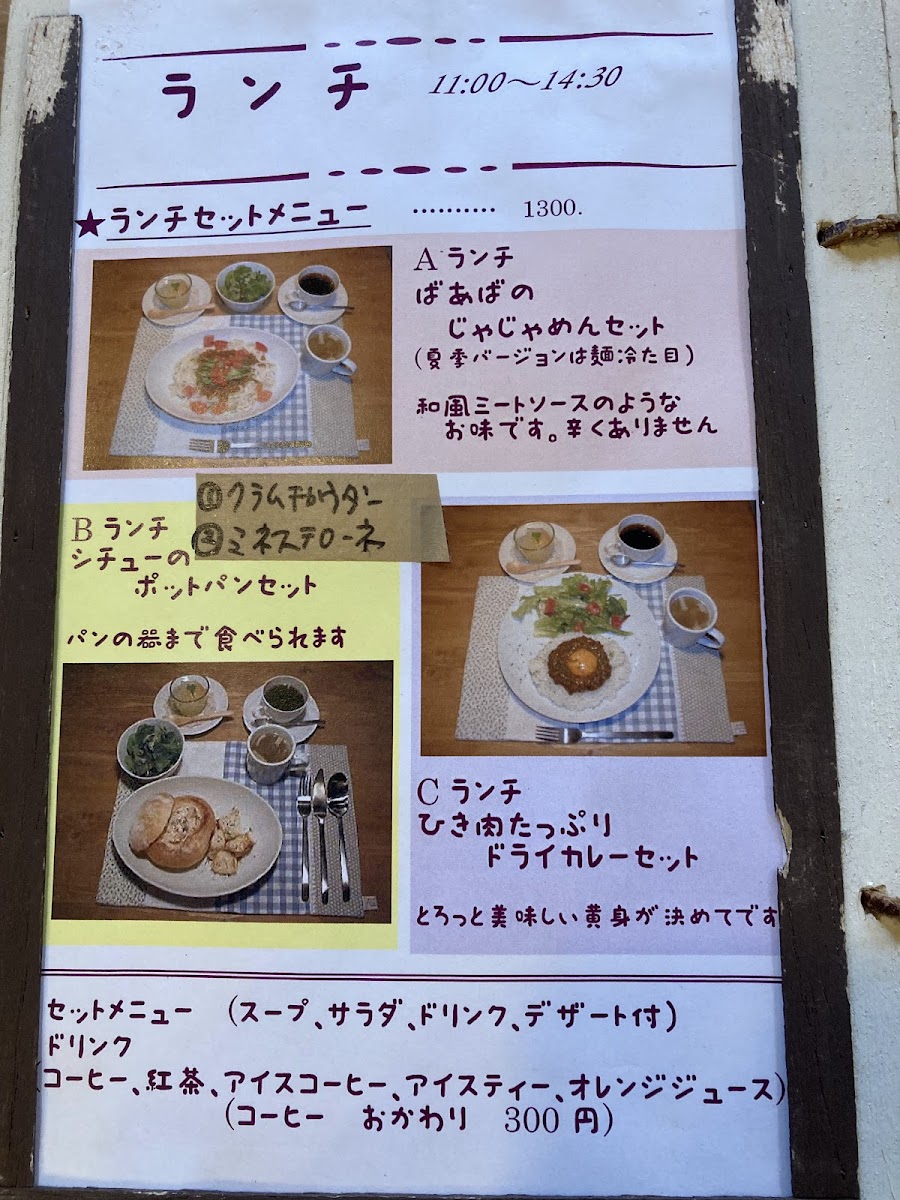 ランチ 11:00〜14:30
★ランチセットメニュー ………… 1300.
A ランチ
ばあばの
じゃじゃめんセット
(夏季バージョンは麺冷た目)
和風ミートソースのような
お味です。辛くありません
①クラムチャウダー
②ミネステローネ
B ランチ
シチューの
ポットパンセット
パンの器まで食べられます
C ランチ
ひき肉たっぷり
ドライカレーセット
とろっと美味しい黄身が決めてです
セットメニュー (スープ、サラダ、ドリンク、デザート付)
ドリンク
(コーヒー、紅茶、アイスコーヒー、アイスティー、オレンジジュース)
(コーヒー おかわり 300 円)